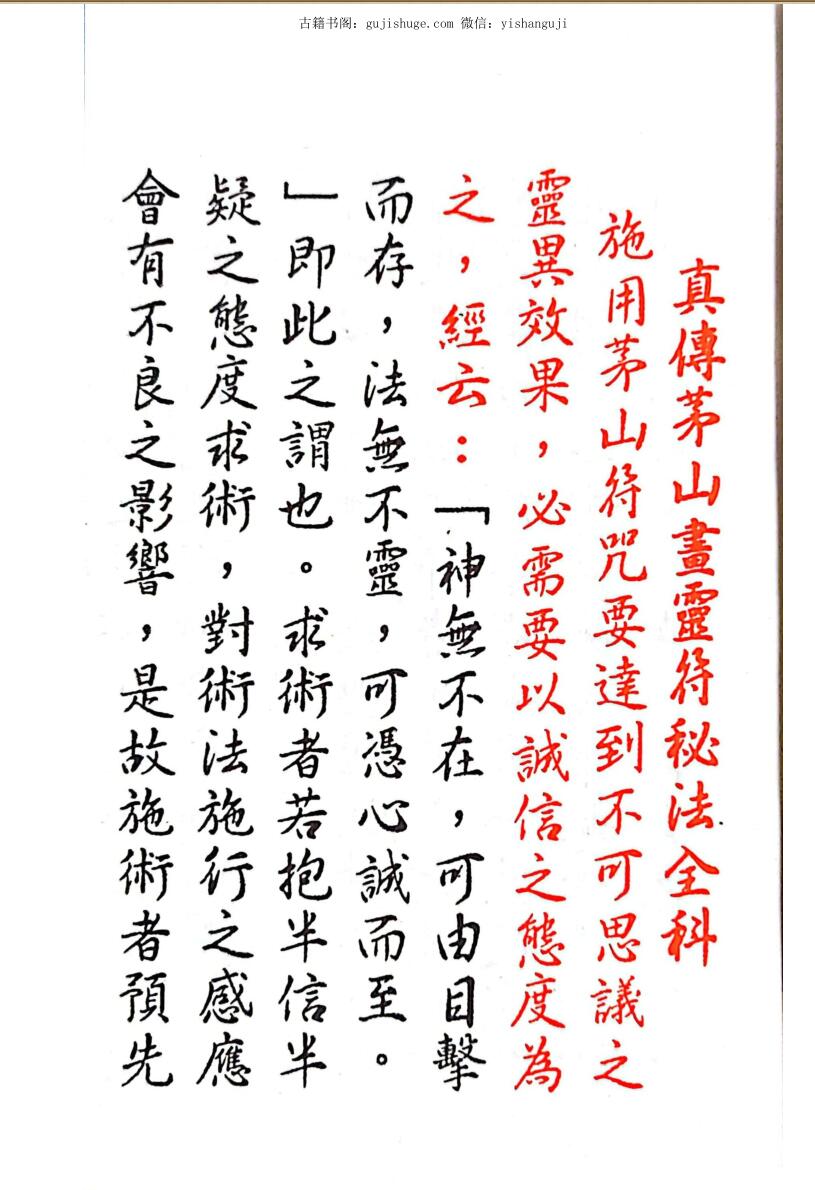 古籍书阁：gujishuge.com 微信：yishanguji
真傳茅山畫靈符秘法全科
施用茅山符咒要達到不可思議之
靈異效果，必需要以誠信之態度為
之，經云：「神無不在，可由目擊
而存，法無不靈，可憑心誠而至。
」即此之謂也。求術者若抱半信半
疑之態度求術，對術法施行之感應
會有不良之影響，是故施術者預先